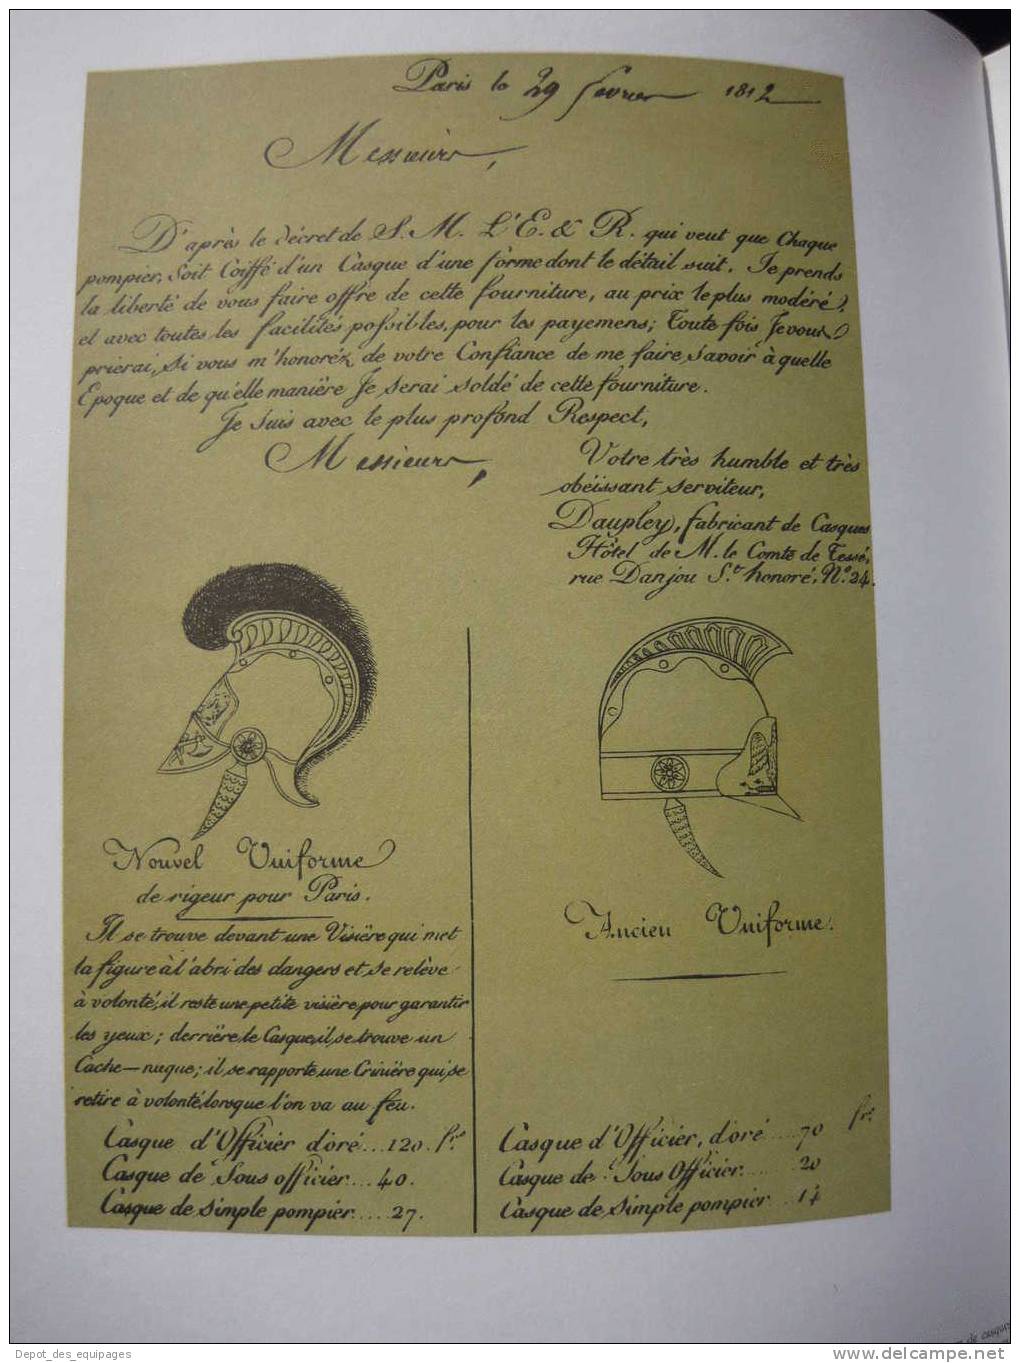 Paris le 29 fevrier 1812
Messieurs,
D'après le décret de S. M. L'E. & R. qui veut que Chaque
pompier, soit Coiffé d'un Casque d'une forme dont le détail suit. Je prends
la liberté de vous faire offre de cette fourniture, au prix le plus modéré,
et avec toutes les facilités possibles, pour les payemens; Toute fois Je vous
prierai, Si vous m'honoréz de votre Confiance de me faire savoir à quelle
Epoque et de qu'elle manière Je serai soldé de cette fourniture.
Je suis avec le plus profond Respect,
Messieurs,
Votre très humble et très
obéissant serviteur,
Daupley, fabricant de Casques
Hôtel de M. le Comte de Tessé,
rue Danjou St. honoré, No. 24.
Nouvel Uniforme
de rigeur pour Paris.
Il se trouve devant une Visière qui met
la figure à l'abri des dangers et se relève
à volonté; il reste une petite visière pour garantir
les yeux; derrière le Casque, il se trouve un
Cache-nuque; il se rapporte une Crinière qui se
retire à volonté lorsque l'on va au feu.
Casque d'Officier doré...120. frs
Casque de Sous officier...40.
Casque de simple pompier....27.
Ancien Uniforme.
frs
Casque d'Officier, doré....70
Casque de Sous Officier.....20
Casque de simple pompier...14
de casques
Depot_des_equipages
www.delcampe.net